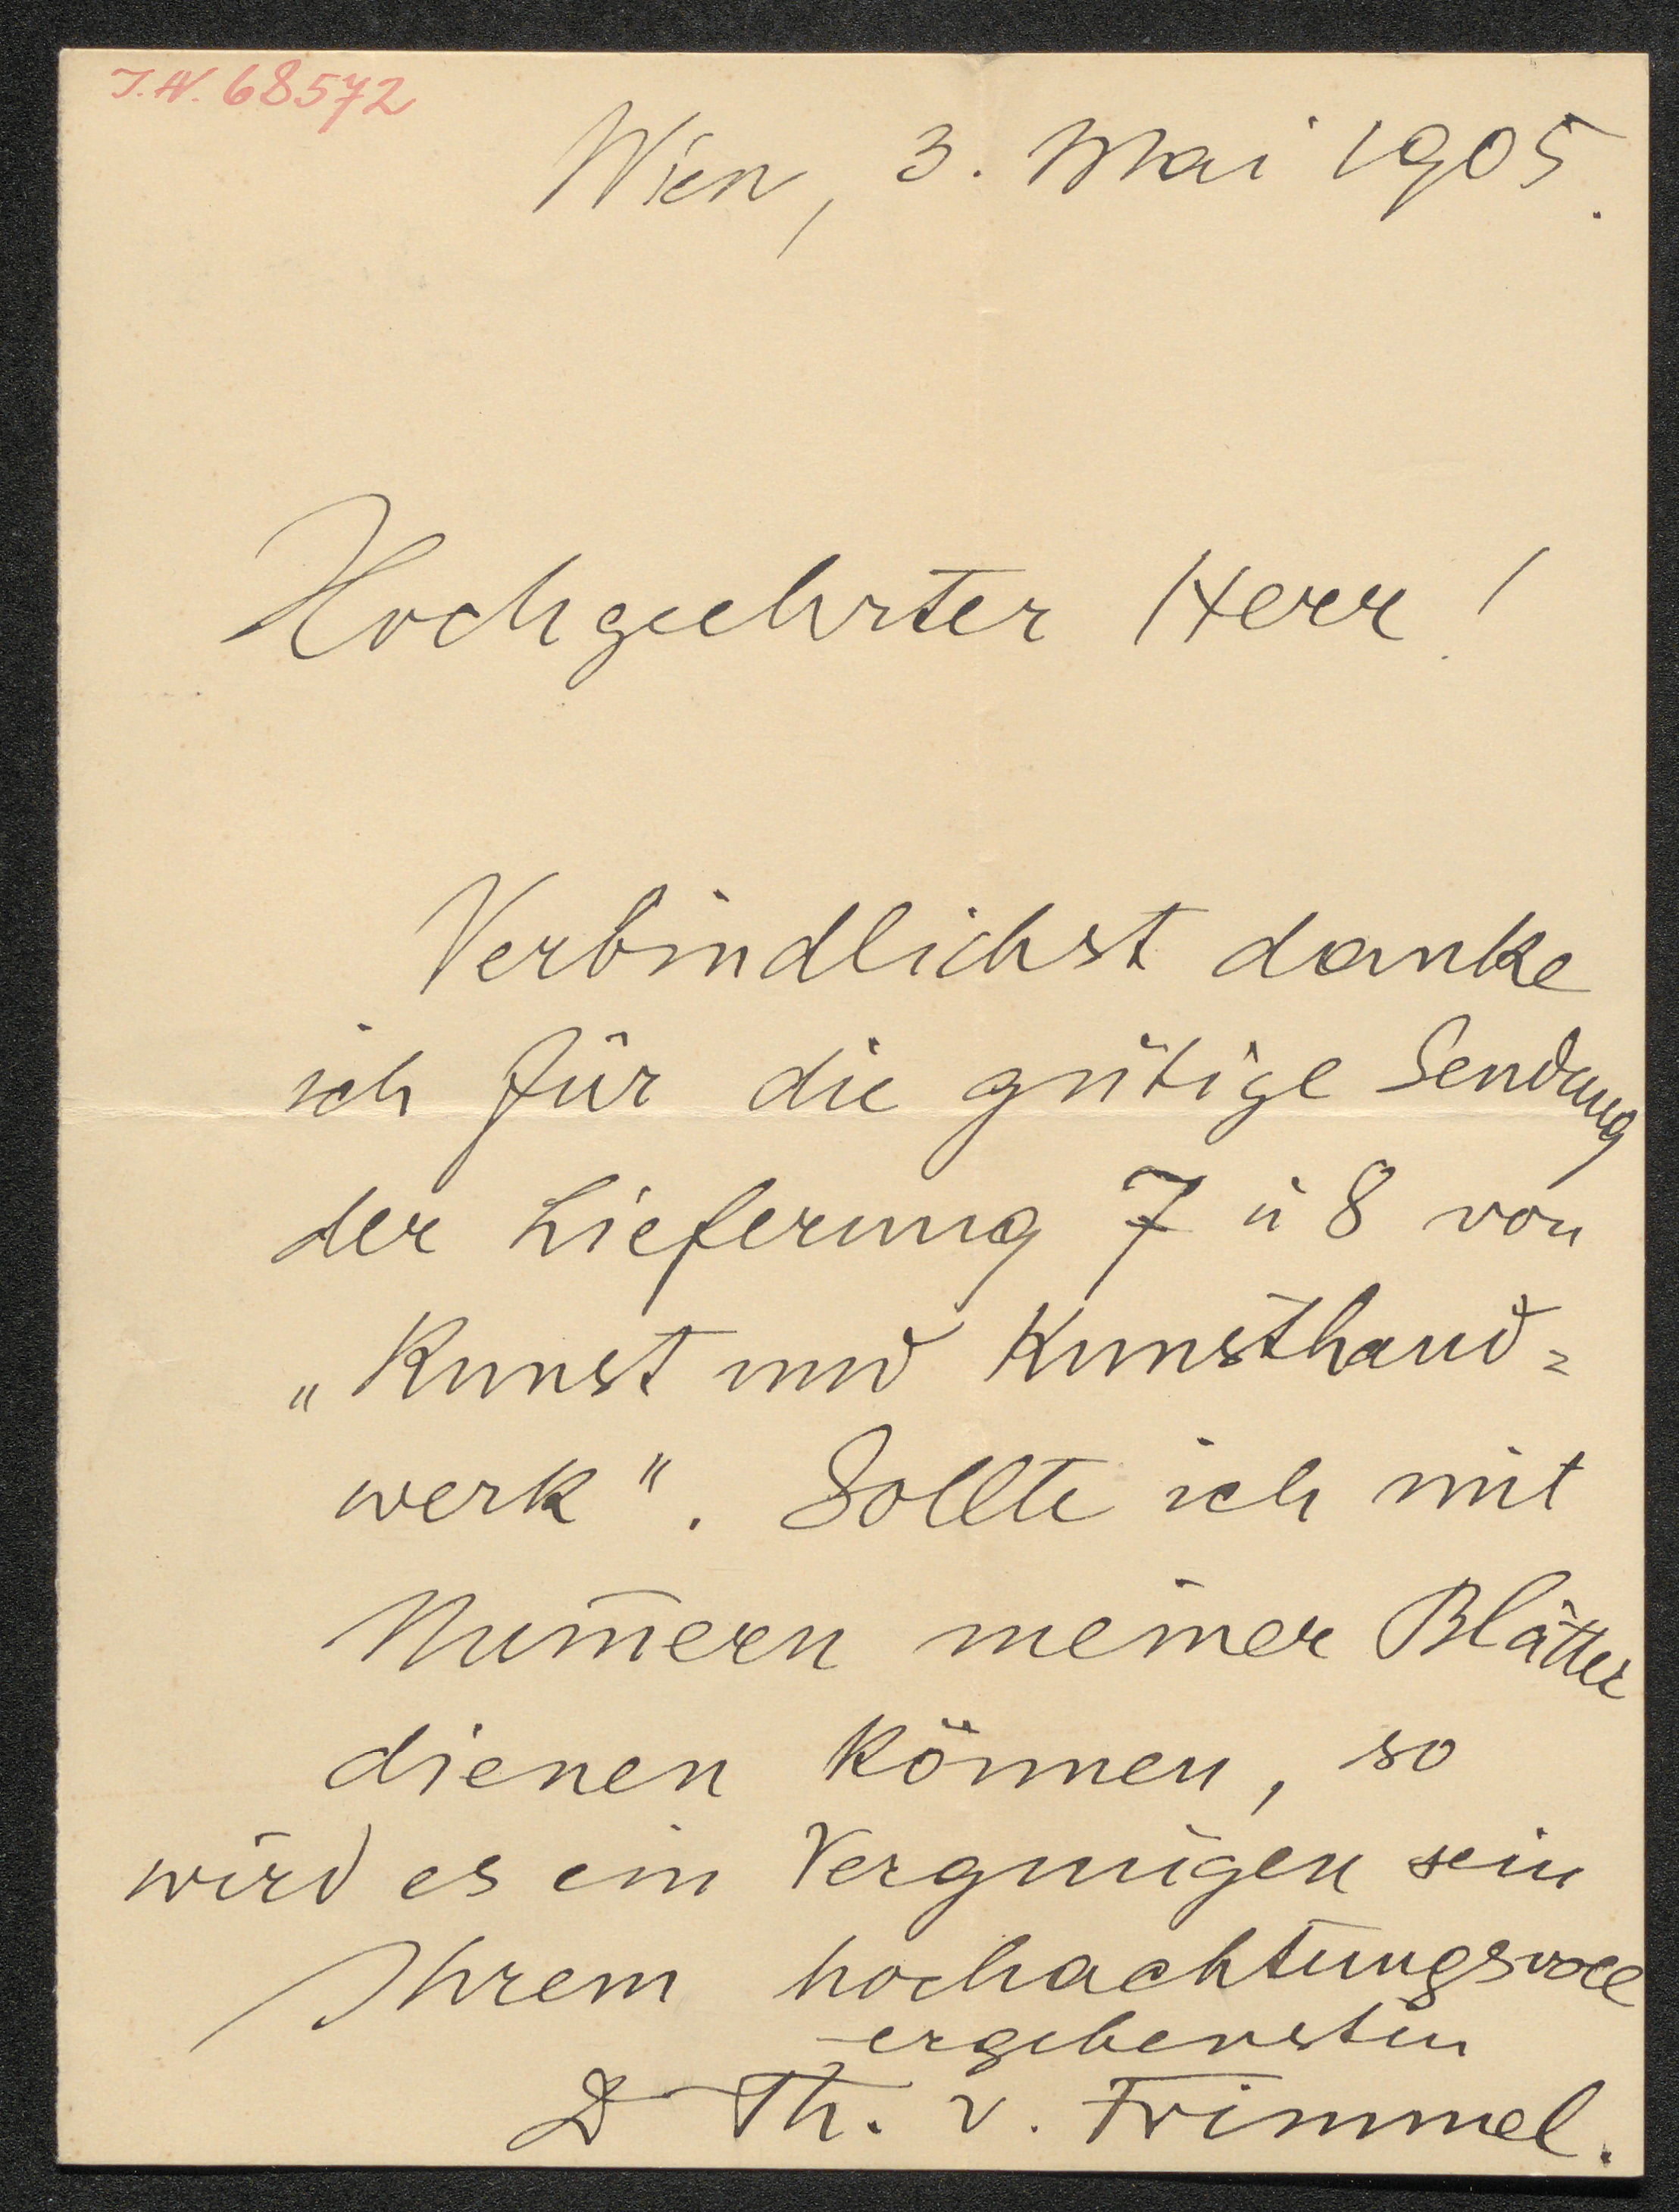 J.N. 68572
Wien, 3. Mai 1905.
Hochgeehrter Herr!
Verbindlichst danke
ich für die gütige Sendung
der Lieferung 7 u 8 von
„Kunst und Kunsthand=
werk“. Sollte ich mit
Num̄ern meiner Blätter
dienen können, so
wird es ein Vergnügen sein
Ihrem hochachtungsvoll
ergebensten
D Th. v. Frimmel.